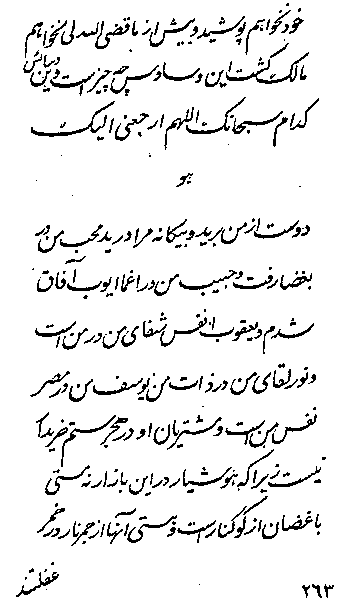 خود نخواهم پوشید و بیش از ما قضی الله لی نخواهم
مالک گشت این وساوس چه چیز است و این دسائس
کدام سبحانک اللهم ارجعنی الیک
هو
دوست از من برید و بیگانه مرا درید محب من در
بغضا رفت و حبیب من در اغما ایوب آفاق
شدم و یعقوب انفس شفای من در من است
و نور لقای من در ذات من یوسف من در مصر
نفس من است و مشتریان او در هجر ستم خریدار
نیست زیرا که هوشیار در این بازار نه مستی
باغضان از کوکنار است و مستی آنها از جمهار در خمر
غفلتند
۲۶۳